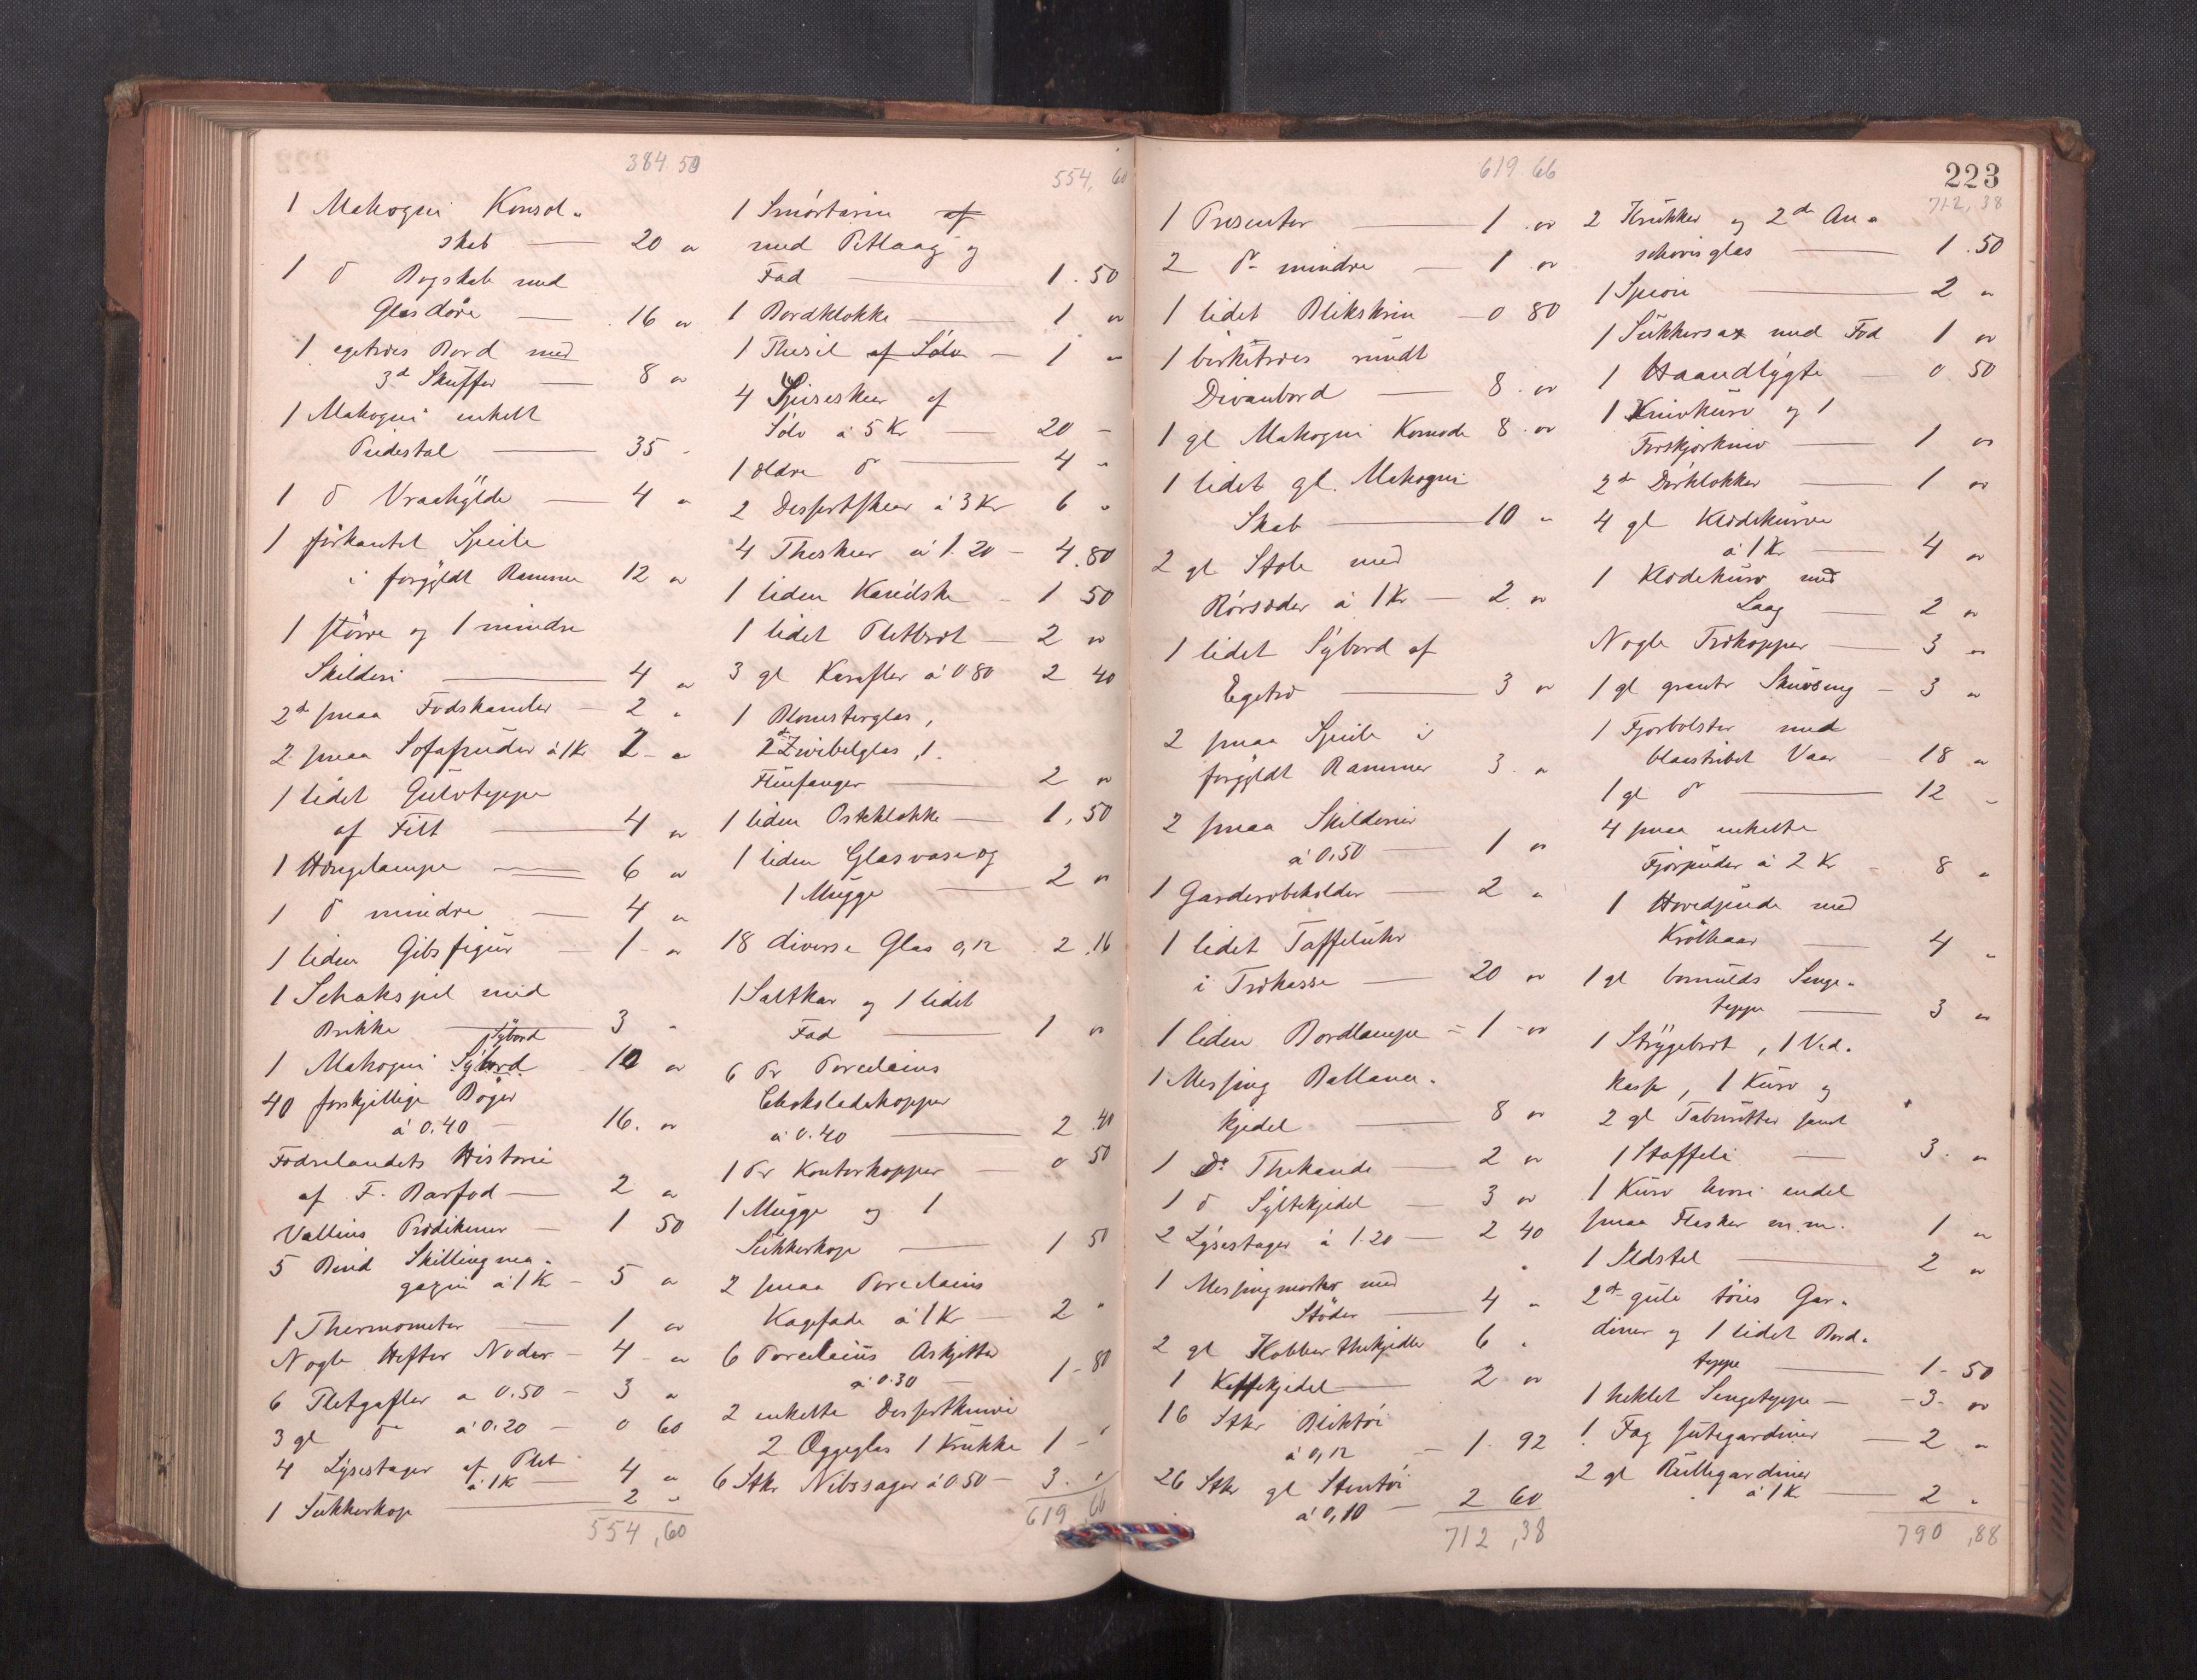 384.50
1 Mahogni Konsol-
skab — 20 "
1 do Bogskab med
Glasdöre — 16 "
1 egetræes Bord med
3de Skuffer — 8 "
1 Mahogni enkelt
Piedestal — 35 "
1 do Vraahylde — 4 "
1 firkantet Speile
i forgyldt Ramme 12 "
1 större og 1 mindre
Skilderi — 4 "
2de smaa Fodskamler — 2 "
2 smaa Sofapuder à 1 Kr 2 - "
1 lidet Gulvteppe
af Filt — 4 "
1 Hængelampe — 6 "
1 do mindre — 4 "
1 liden Gibsfigur — 1 - "
1 Schakspil med
Brikke — 3 "
Sybord
1 Mahogni Sybord 10 "
40 forskjellige Böger
à 0.40 — 16. "
Fædrelandets Historie
af F. Barfod — 2 "
Vallins Prædikener — 1 50
5 Bind Skillingma-
gazin à 1 Kr — 5 "
1 Thermometer — 1 "
Nogle Hefter Noder — 4 - "
6 Pletgafler a 0.50 — 3 "
3 gl do à 0.20 — 0 60
4 Lysestager af Plet
à 1 K — 4 "
1 Sukkerkop — 2 "
554,60
554,60
1 Smörterin af
med Petlaag og
Fad — 1.50
1 Bordklokke — 1 "
1 Thesil af Sölv — 1 "
4 Spiseskeer af
Sölv à 5 Kr — 20 -
1 ældre do — 4 "
2 Dessertskeer à 3 Kr 6 "
4 Theskeer à 1.20 — 4.80
1 liden Kanelske — 1 50
1 lidet Pletbræt — 2 "
3 gl Karafler à 0.80 2 40
1 Blomsterglas,
2de Zwibelglas, 1
Fluefanger — 2 "
1 liden Osteklokke — 1,50
1 liden Glasvase og
1 Mugge — 2 "
18 diverse Glas 0,12 2.16
1 Saltkar og 1 lidet
Fad — 1 "
6 Pr Porcelains
Chokoladekopper
à 0.40 — 2.40
1 Pr Kontorkopper — 0 50
1 Mugge og 1
Sukkerkop — 1 50
2 smaa Porcelains
Kagefade à 1 Kr — 2 "
6 Porcelains Asjetter
à 0.30 — 1-80
2 enkelte Dessertknive
2 Æggeglas 1 Krukke 1 - "
6 Stkr Nibssager à 0 50 — 3. "
619,66
619 66
1 Presenter — 1 . "
2 do mindre — 1 "
1 lidet Blikskrin — 0 80
1 birketræes rundt
Divanbord — 8. "
1 gl Mahogni Komode 8. "
1 lidet gl. Mahogni
Skab — 10 "
2 gl Stole med
Rörsæder à 1 Kr — 2. "
1 lidet Sybord af
Egetræ — 3 "
2 smaa Speile i
forgyldt Rammer 3. "
2 smaa Skilderier
à 0,50 — 1 "
1 Garderobeholder — 2 "
1 lidet Taffeluhr
i Trækasse — 20 "
1 liden Bordlampe = 1 - "
1 Messing Ballance-
kjedel — 8 "
1 Do Thekande — 2 "
1 do Syltekjedel — 3 "
2 Lysestager à 1.20 — 2 40
1 Messingmorter med
Stöder — 4 "
2 gl Kobber thekjedle 6 "
1 Kaffekjedel — 2 "
16 Stkr Bliktöi
à 0,12 — 1. 92
26 Stkr gl Stentöi
à 0,10 — 2 60
712,38
223
712,38
2 Krukker og 2de An-
schovisglas — 1.50
1 Spion — 2 "
1 Sukkersax med Fod 1 "
1 Haandlygte — 0 50
1 Knivkurv og 1
Forskjærkniv — 1 "
2de Dörklokker — 1 "
4 gl Klædekurve
à 1 Kr — 4 "
1 Klædekurv med
Laag — 2 "
Nogle Trækopper — 3 "
1 gl grantr Skuvseng — 3 "
1 Fjærbolster med
blaastribet Vaar — 18 "
1 gl do — 12 "
4 smaa enkelte
Fjærpuder à 2 Kr — 8 "
1 Hovedpude med
Krölhaar — 4 "
1 gl bomulds Senge-
teppe — 3 "
1 Strygebræt, 1 Ved-
kasse, 1 Kurv og
2 gl Taburetter samt
1 Staffeli — 3. "
1 Kurv hvori endel
smaa Flasker m.m. 1 "
1 Ildstel — 2 "
2de gule töies Gar-
diner og 1 lidet Bord-
teppe — 1-50
1 heklet Sengeteppe — -3- "
1 Fag Jutegardiner — 2 "
2 gl Rullegardiner
à 1 K — 2 "
790,88